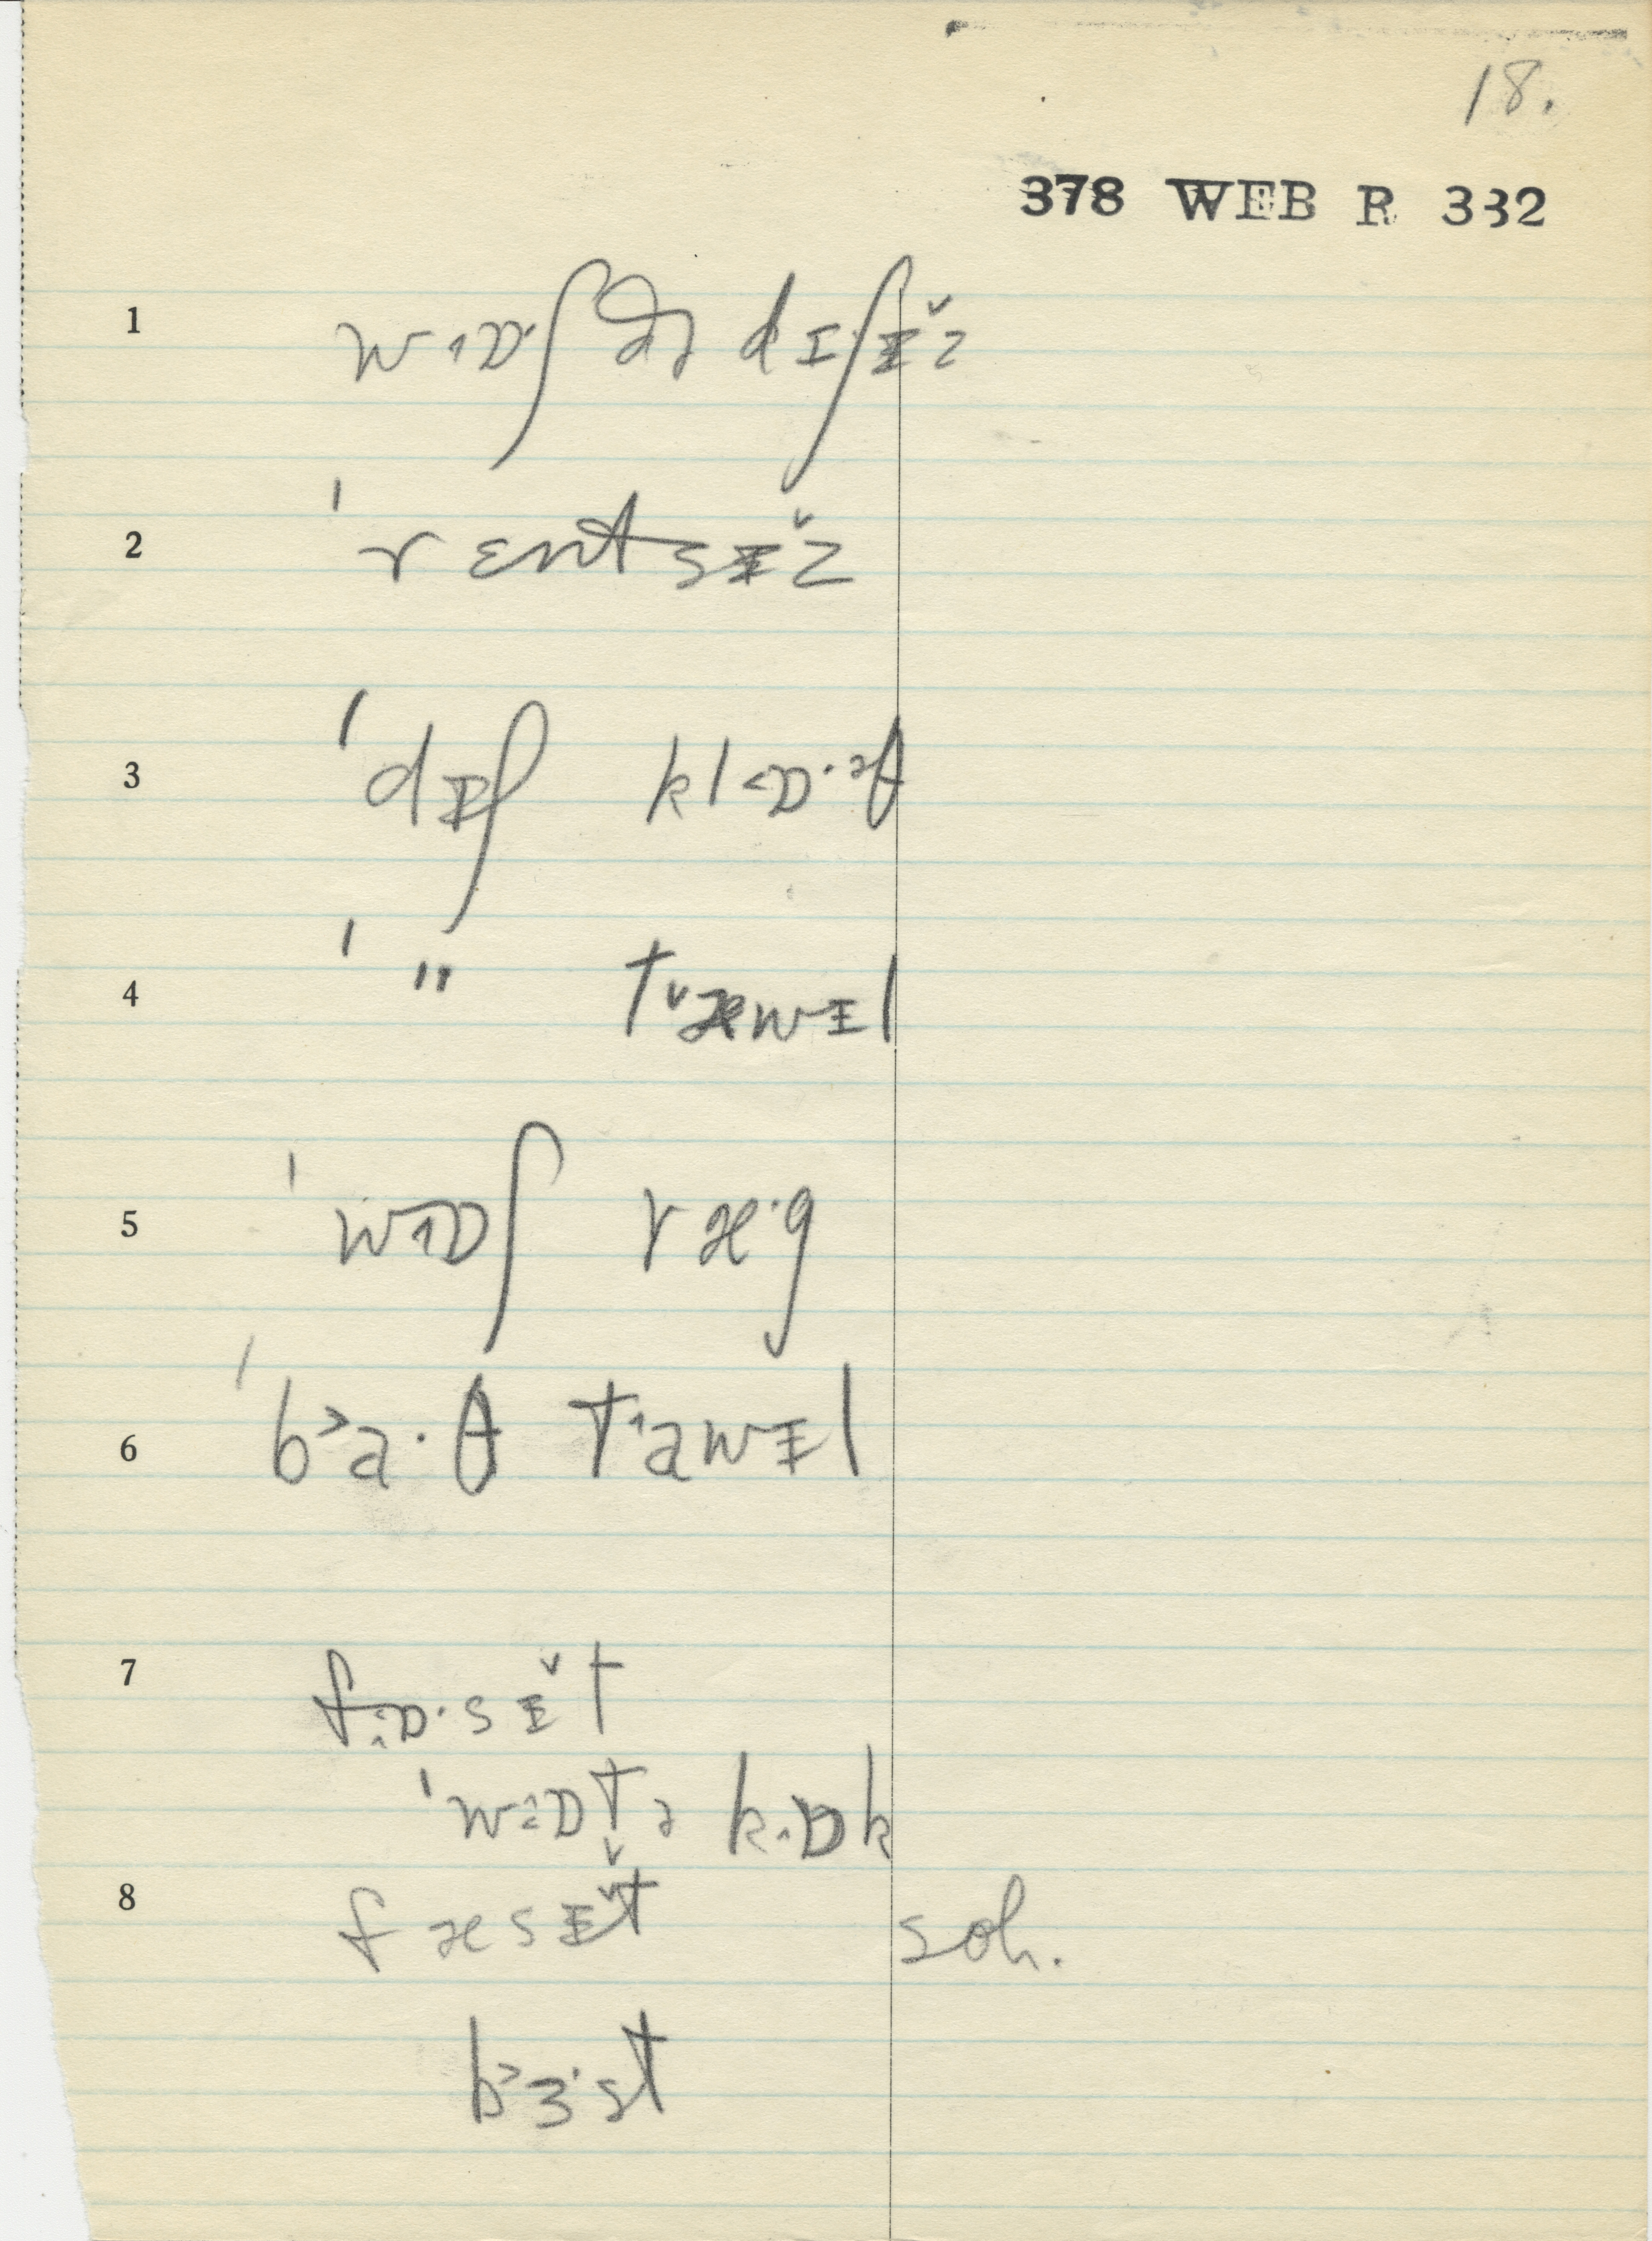 18.
378 WEB R 332
1 w˔ɒ·ʃ ðə dɪʃɪ̵̌z
2 ˈrɛntsɪ̵̌z
3 ˈdɪ̵ʃ kl˂ɒ·ᵊθ
4 ˈ " t˅æwɪ̵l
5 ˈw˔ɒʃ ræ·g
6 ˈb˃a·θ t˔awɪ̵l
7 f˔ɒ·sɪ̵̌t
ˈwɒt̬ə k˔ɒk
8 fæsɪ̵̌t soh.
b˃ɜ·st